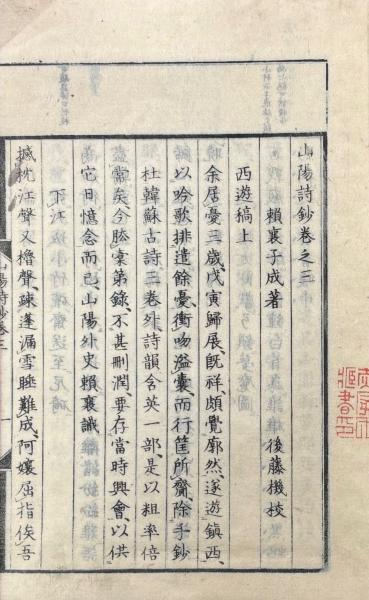 山陽詩鈔卷之三
賴襄子成著　後藤機校
西遊稿上
余居憂三歲、戊寅歸展、旣祥、頗覺廓然、遂遊鎭西、
以吟歌排遣餘憂、衝吻溢囊、而行笸所齎、除手鈔
杜韓蘇古詩三卷外、詩韻含英一部、是以粗率倍
嘗矣、今胠稾第錄、不甚刪潤、要存當時興會、以供
它日憶念而已、山陽外史賴襄識
下江
搣枕江聲又櫓聲、疎蓬漏雪睡難成、阿孃屈指俟吾
山陽詩鈔卷三